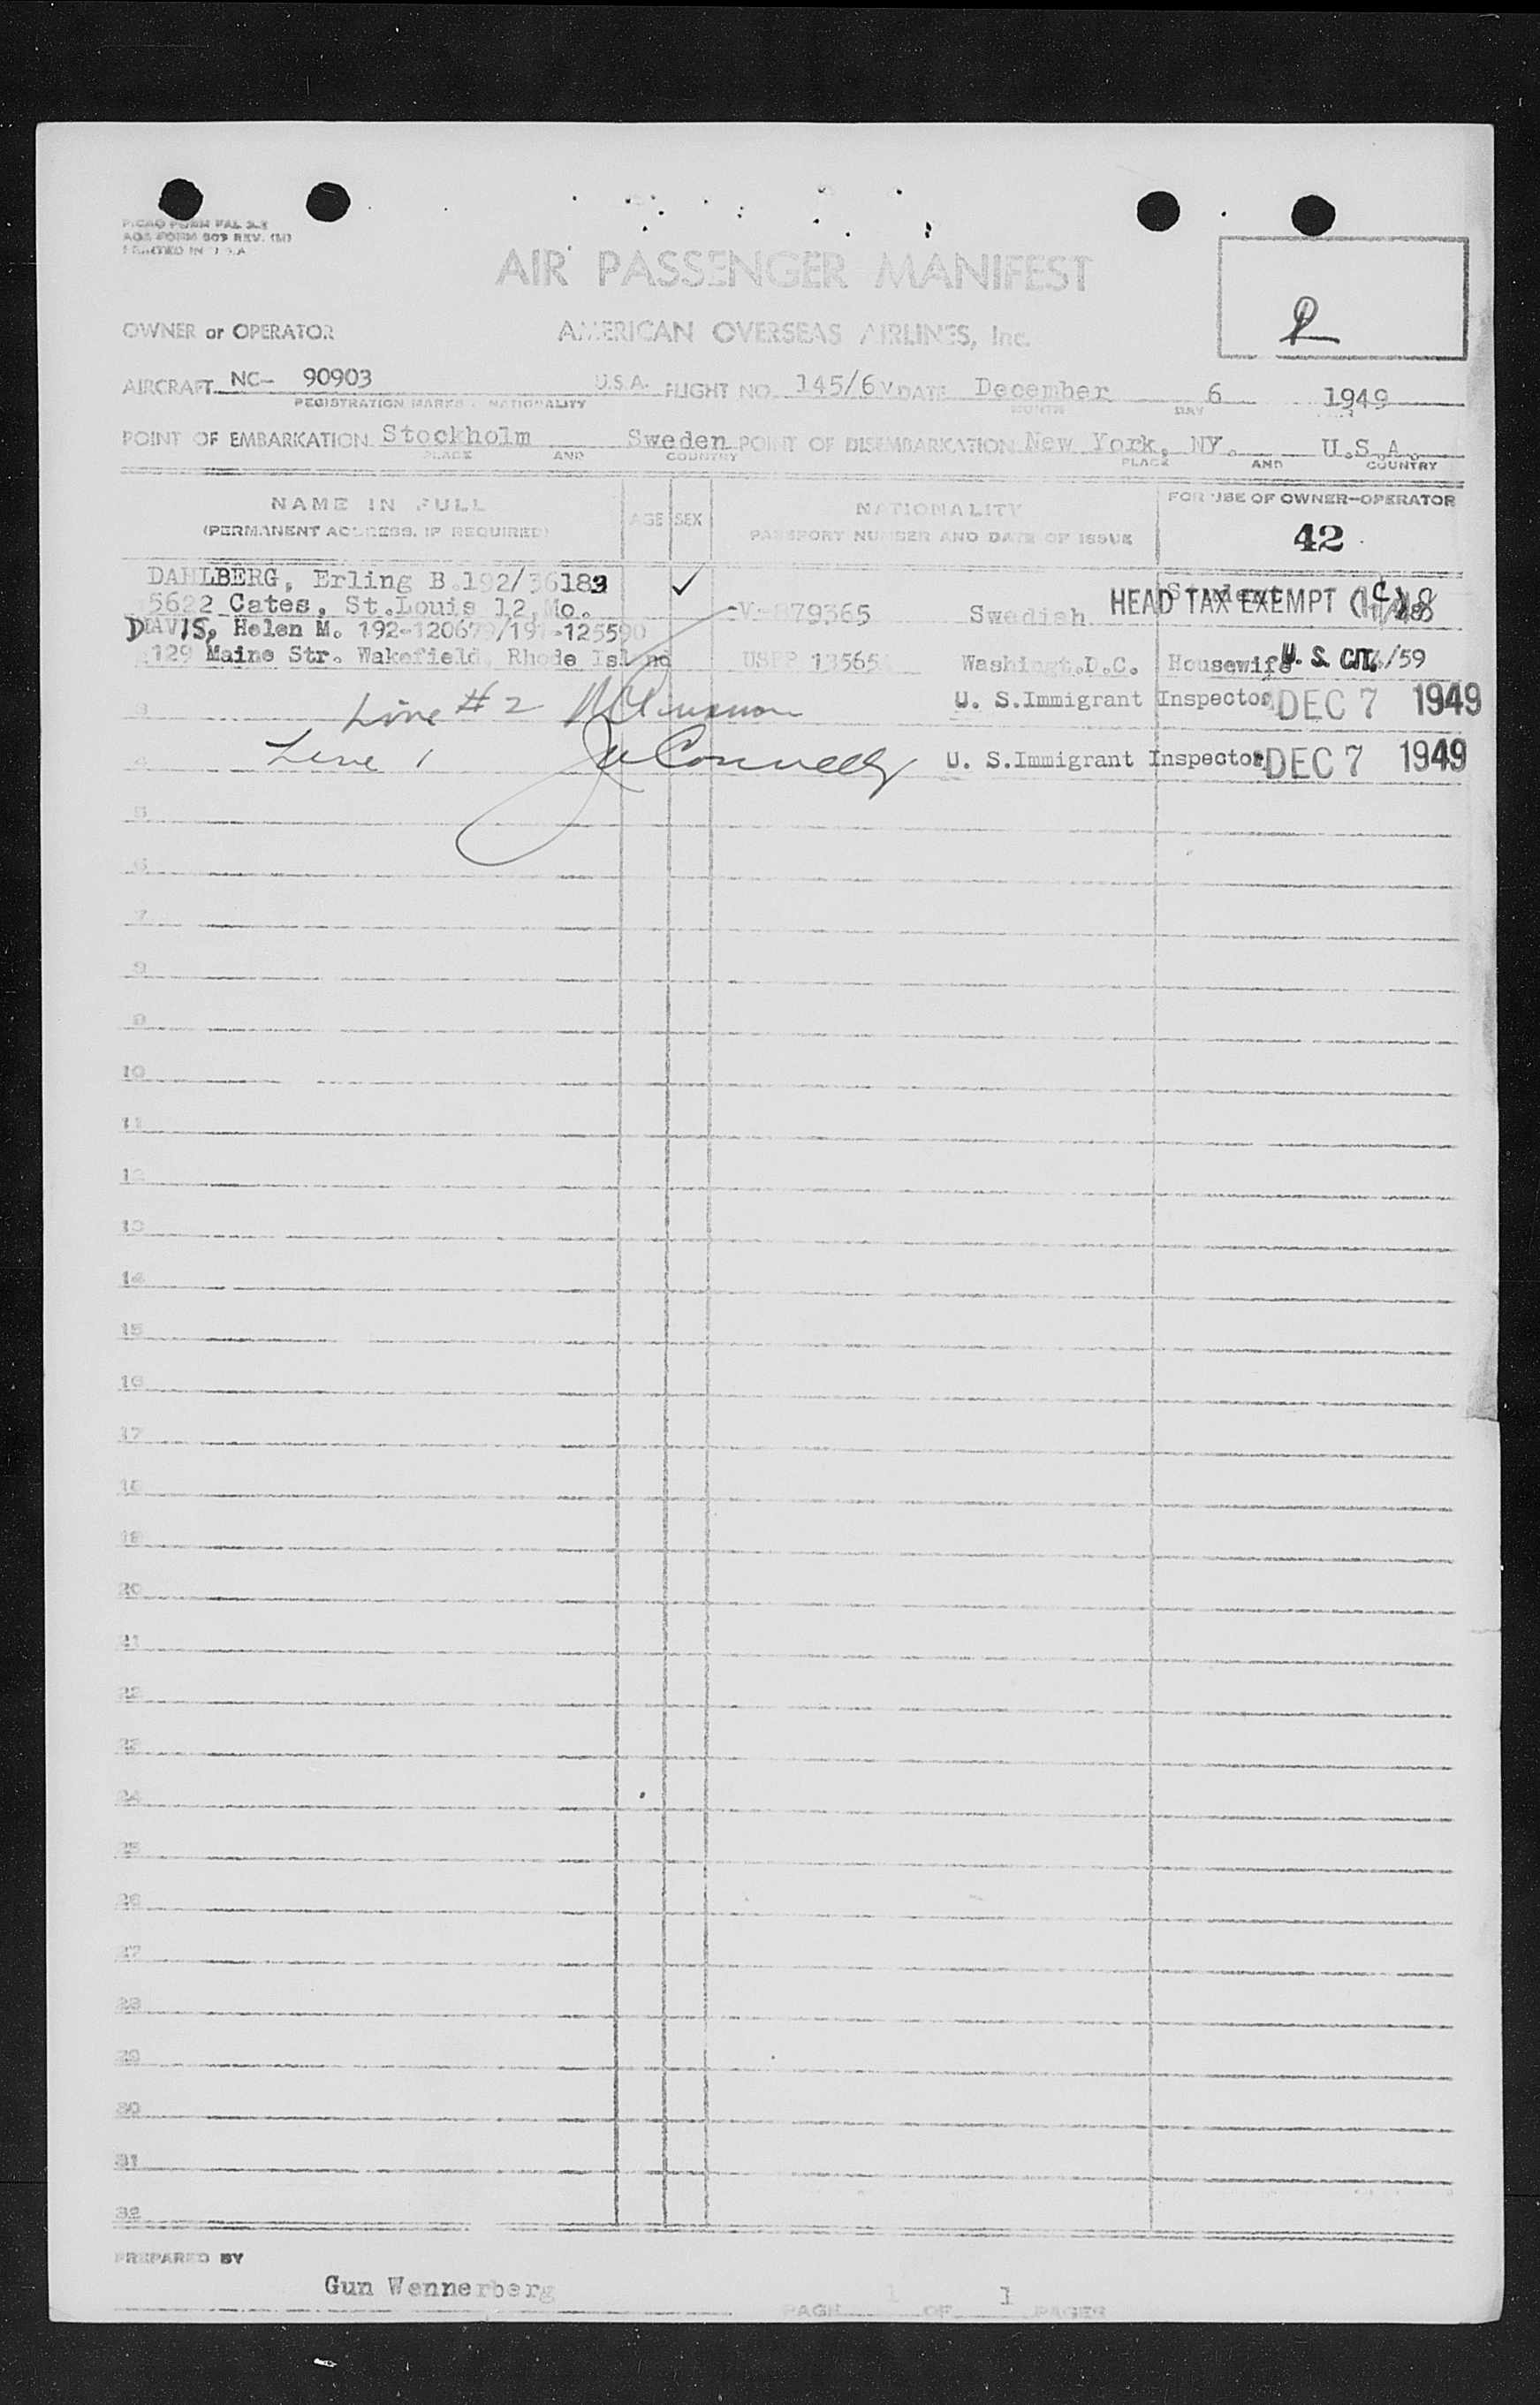 PICAO FORM FAL 2.2
AOA FORM 809 REV. (M)
PRINTED IN U.S.A
AIR PASSENGER MANIFEST
OWNER or OPERATOR AMERICAN OVERSEAS AIRLINES, Inc.
AIRCRAFT NC- 90903 U.S.A. FLIGHT NO. 145/6v DATE December 6 1949
REGISTRATION MARKS NATIONALITY MONTH DAY
POINT OF EMBARKATION Stockholm Sweden POINT OF DISEMBARKATION New York, NY. U.S.A.
PLACE AND COUNTRY PLACE AND COUNTRY
NAME IN FULL AGE SEX NATIONALITY FOR USE OF OWNER-OPERATOR
(PERMANENT ADDRESS, IF REQUIRED) PASSPORT NUMBER AND DATE OF ISSUE 42
DAHLBERG, Erling B.192/36183
5622 Cates, St.Louis 12,Mo. V-879365 Swedish Student HEAD TAX EXEMPT
DAVIS, Helen M. 192-120679/191-125590
129 Maine Str. Wakefield, Rhode Island USPP 13565 Washingt.D.C. Housewife U. S. CIT. /59
3 Line #2 U. S.Immigrant Inspector DEC 7 1949
4 Line 1 U. S.Immigrant Inspector DEC 7 1949
5
6
7
8
9
10
11
12
13
14
15
16
17
18
19
20
21
22
23
24
25
26
27
28
29
30
31
32
PREPARED BY
Gun Wennerberg
PAGE 1 OF 1 PAGES